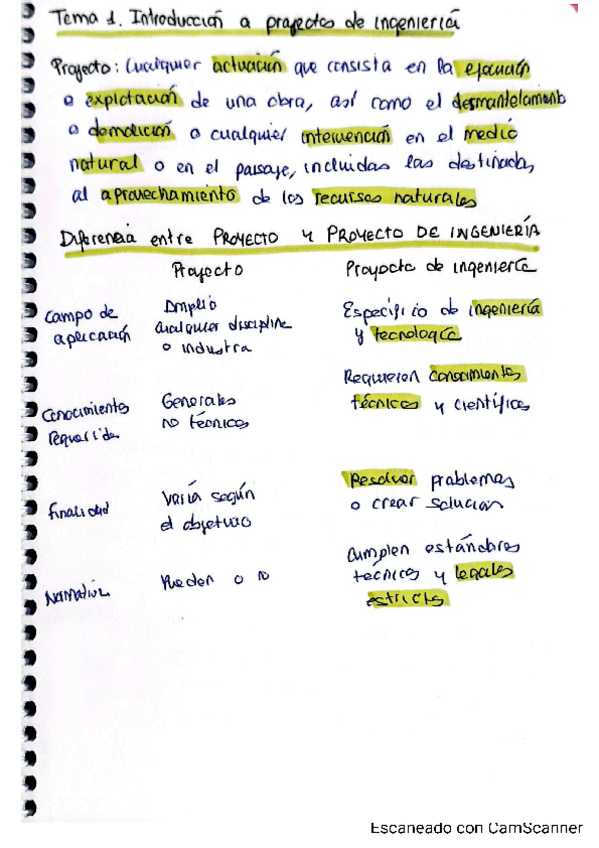 Tema 1. Introducción a proyectos de ingeniería
Proyecto: Cualquier actuación que consista en la ejecución
o explotación de una obra, así como el desmantelamiento
o demolición o cualquier intervención en el medio
natural o en el paisaje, incluidas las destinadas
al aprovechamiento de los recursos naturales
Diferencia entre PROYECTO y PROYECTO DE INGENIERÍA
Proyecto Proyecto de ingeniería
Campo de aplicación Amplio Específico de ingeniería
cualquier disciplina y tecnología
o industra
Conocimientos requeridos Generales Requieren conocimientos
no técnicos técnicos y científicos
Finalidad Varía según Resolver problemas
el objetivo o crear solucion
Normativa Pueden o no Cumplen estándares
técnicos y legales
estrictos
Escaneado con CamScanner